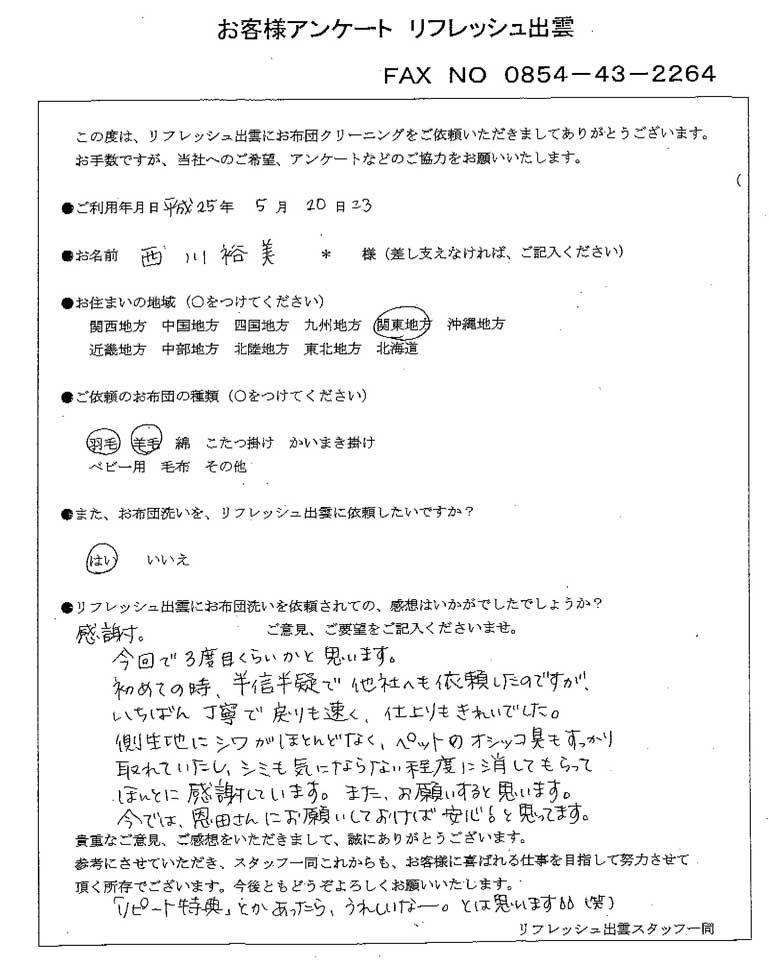 お客様アンケート リフレッシュ出雲
FAX NO 0854-43-2264
この度は、リフレッシュ出雲にお布団クリーニングをご依頼いただきましてありがとうございます。
お手数ですが、当社へのご希望、アンケートなどのご協力をお願いいたします。
●ご利用年月日 平成25年 5月 20日
●お名前 西川裕美 * 様（差し支えなければ、ご記入ください）
●お住まいの地域（○をつけてください）
関西地方 中国地方 四国地方 九州地方 関東地方 沖縄地方
近畿地方 中部地方 北陸地方 東北地方 北海道
●ご依頼のお布団の種類（○をつけてください）
羽毛 羊毛 綿 こたつ掛け かいまき掛け
ベビー用 毛布 その他
●また、お布団洗いを、リフレッシュ出雲に依頼したいですか？
はい いいえ
●リフレッシュ出雲にお布団洗いを依頼されての、感想はいかがでしたでしょうか？
ご意見、ご要望をご記入くださいませ。
感謝。
今回で3度目くらいかと思います。
初めての時、半信半疑で他社へも依頼したのですが、
いちばん丁寧で戻りも速く、仕上りもきれいでした。
側生地にシワがほとんどなく、ペットのオシッコ臭もすっかり
取れていたし、シミも気にならない程度に消してもらって
ほんとに感謝しています。また、お願いすると思います。
今では、恩田さんにお願いしておけば安心♪と思ってます。
貴重なご意見、ご感想をいただきまして、誠にありがとうございます。
参考にさせていただき、スタッフ一同これからも、お客様に喜ばれる仕事を目指して努力させて
頂く所存でございます。今後ともどうぞよろしくお願いいたします。
「リピート特典」とかあったら、うれしいなー。とは思います(笑)
リフレッシュ出雲スタッフ一同